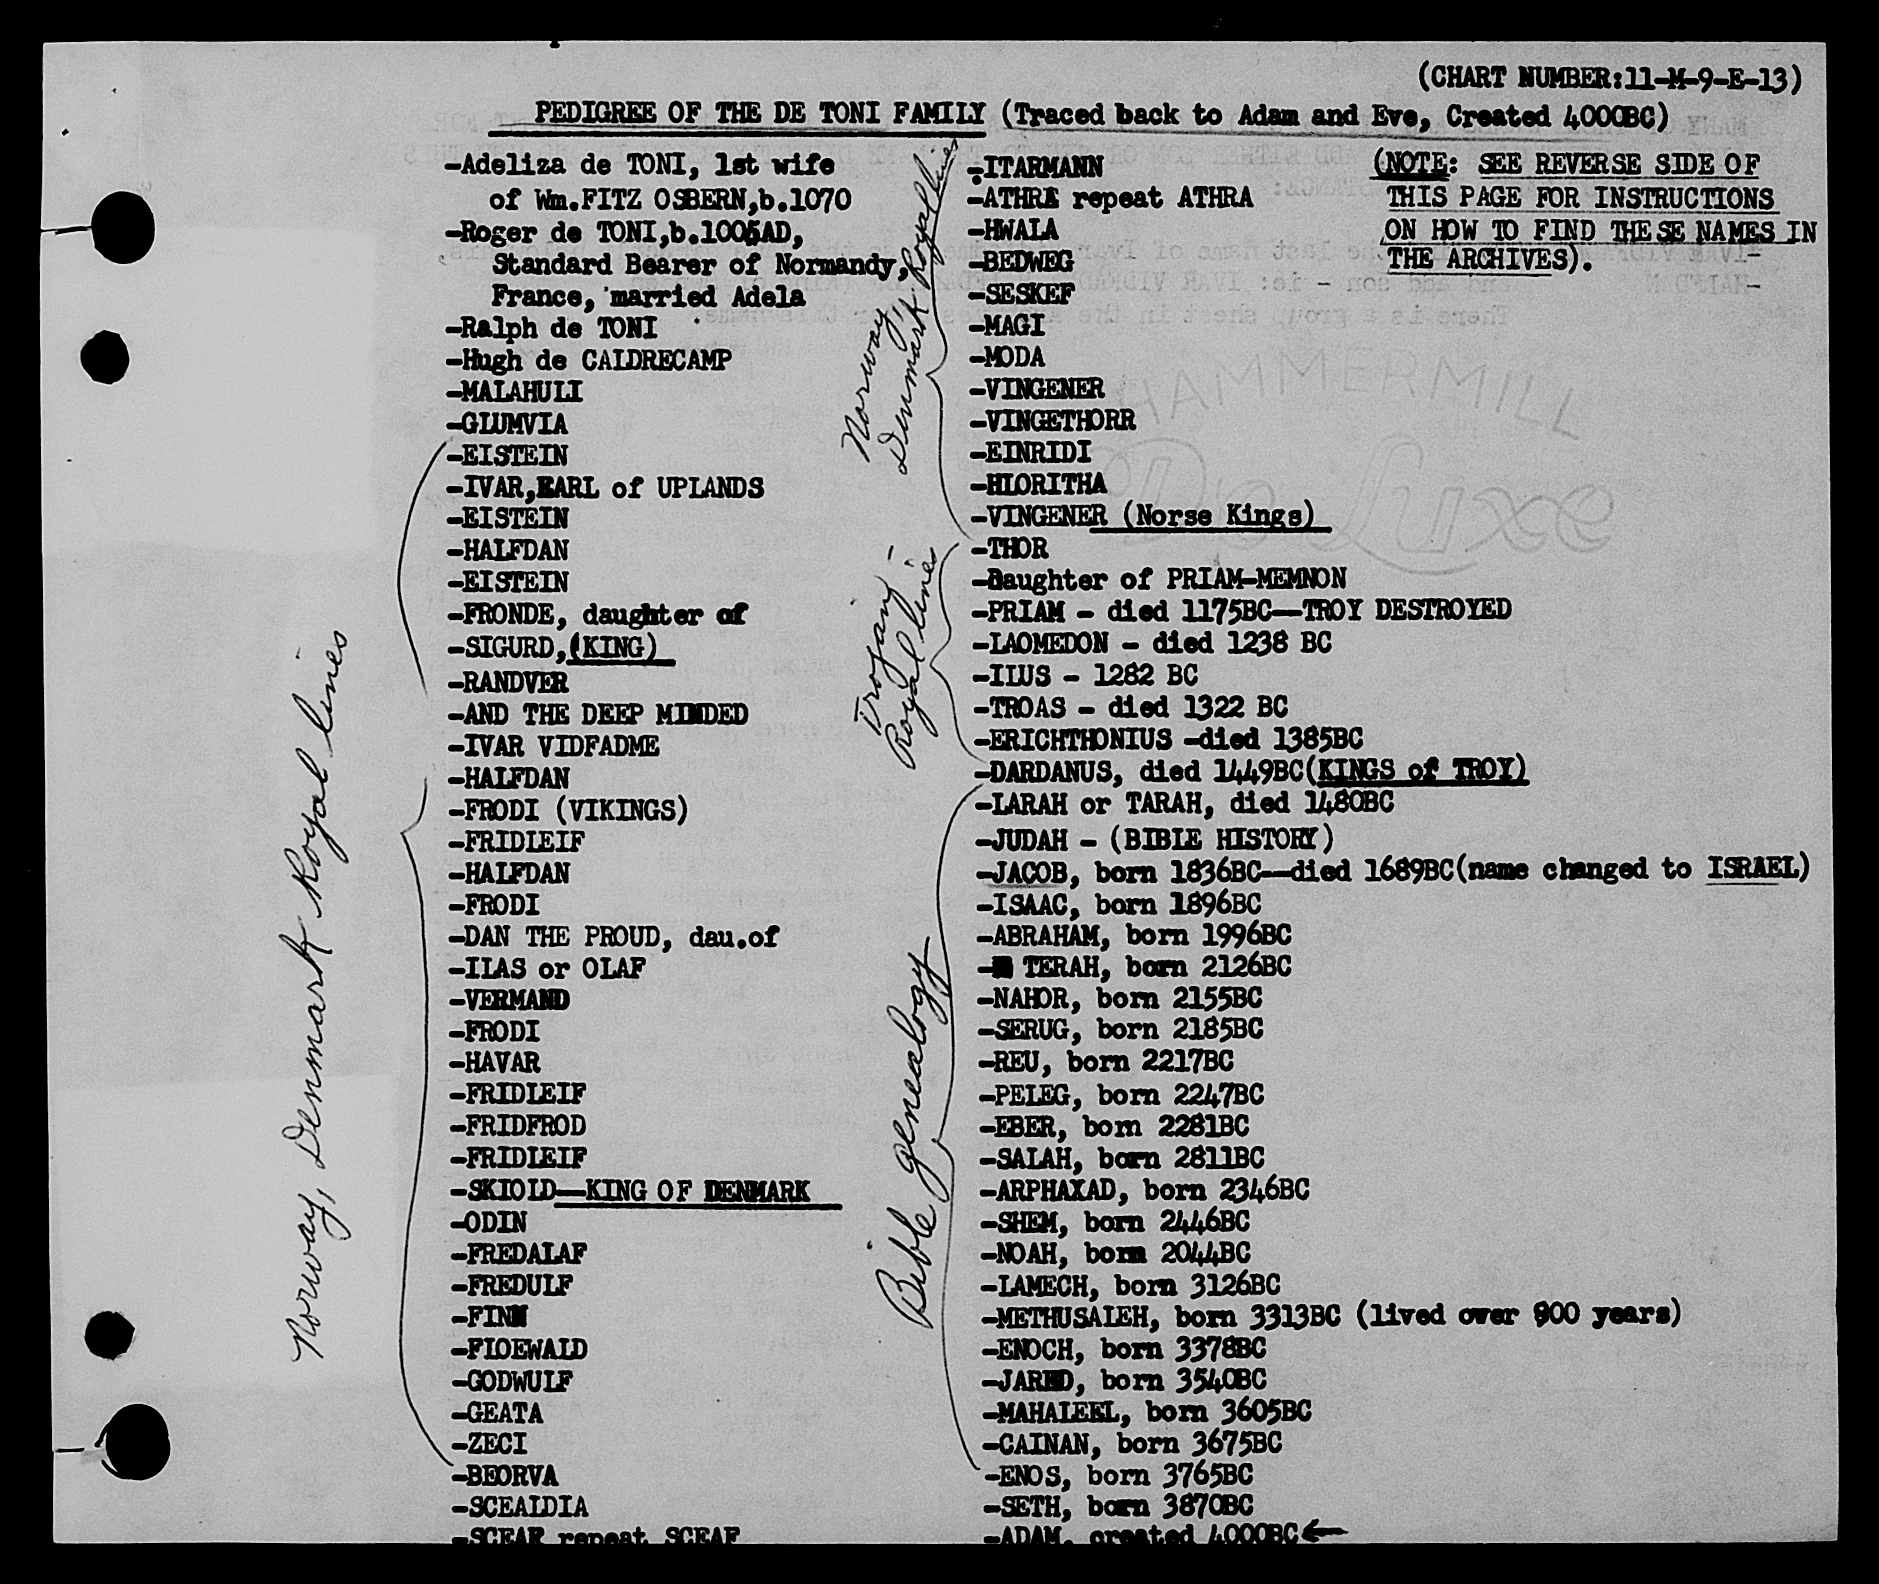 (CHART NUMBER:11-M-9-E-13)
PEDIGREE OF THE DE TONI FAMILY (Traced back to Adam and Eve, Created 4000BC)
-Adeliza de TONI, 1st wife
of Wm.FITZ OSBERN,b.1070
-Roger de TONI,b.1005AD,
Standard Bearer of Normandy,
France, married Adela
-Ralph de TONI
-Hugh de CALDRECAMP
-MALAHULI
-GLUMVIA
-EISTEIN
-IVAR,EARL of UPLANDS
-EISTEIN
-HALFDAN
-EISTEIN
-FRONDE, daughter of
-SIGURD,(KING)
-RANDVER
-AND THE DEEP MINDED
-IVAR VIDFADME
-HALFDAN
-FRODI (VIKINGS)
-FRIDLEIF
-HALFDAN
-FRODI
-DAN THE PROUD, dau.of
-ILAS or OLAF
-VERMAND
-FRODI
-HAVAR
-FRIDLEIF
-FRIDFROD
-FRIDLEIF
-SKIOLD—KING OF DENMARK
-ODIN
-FREDALAF
-FREDULF
-FINN
-FLOEWALD
-GODWULF
-GEATA
-ZECI
-BEORVA
-SCEALDIA
-SCEAF repeat SCEAF
Norway, Denmark Royal lines
-ITARMANN
-ATHRA repeat ATHRA
-HWALA
-BEDWEG
-SESKEF
-MAGI
-MODA
-VINGENER
-VINGETHORR
-EINRIDI
-HLORITHA
-VINGENER (Norse Kings)
-THOR
-daughter of PRIAM-MEMNON
-PRIAM - died 1175BC—TROY DESTROYED
-LAOMEDON - died 1238 BC
-ILUS - 1282 BC
-TROAS - died 1322 BC
-ERICHTHONIUS -died 1385BC
-DARDANUS, died 1449BC(KINGS of TROY)
-LARAH or TARAH, died 1480BC
-JUDAH - (BIBLE HISTORY)
-JACOB, born 1836BC—died 1689BC(name changed to ISRAEL)
-ISAAC, born 1896BC
-ABRAHAM, born 1996BC
- TERAH, born 2126BC
-NAHOR, born 2155BC
-SERUG, born 2185BC
-REU, born 2217BC
-PELEG, born 2247BC
-EBER, born 2281BC
-SALAH, born 2811BC
-ARPHAXAD, born 2346BC
-SHEM, born 2446BC
-NOAH, born 2044BC
-LAMECH, born 3126BC
-METHUSALEH, born 3313BC (lived over 900 years)
-ENOCH, born 3378BC
-JARED, born 3540BC
-MAHALEEL, born 3605BC
-CAINAN, born 3675BC
-ENOS, born 3765BC
-SETH, born 3870BC
-ADAM, created 4000BC←
Norway,
Denmark Royal lines
Trojan -
Royal lines
Bible genealogy
(NOTE: SEE REVERSE SIDE OF
THIS PAGE FOR INSTRUCTIONS
ON HOW TO FIND THESE NAMES IN
THE ARCHIVES).
HAMMERMILL
De Luxe